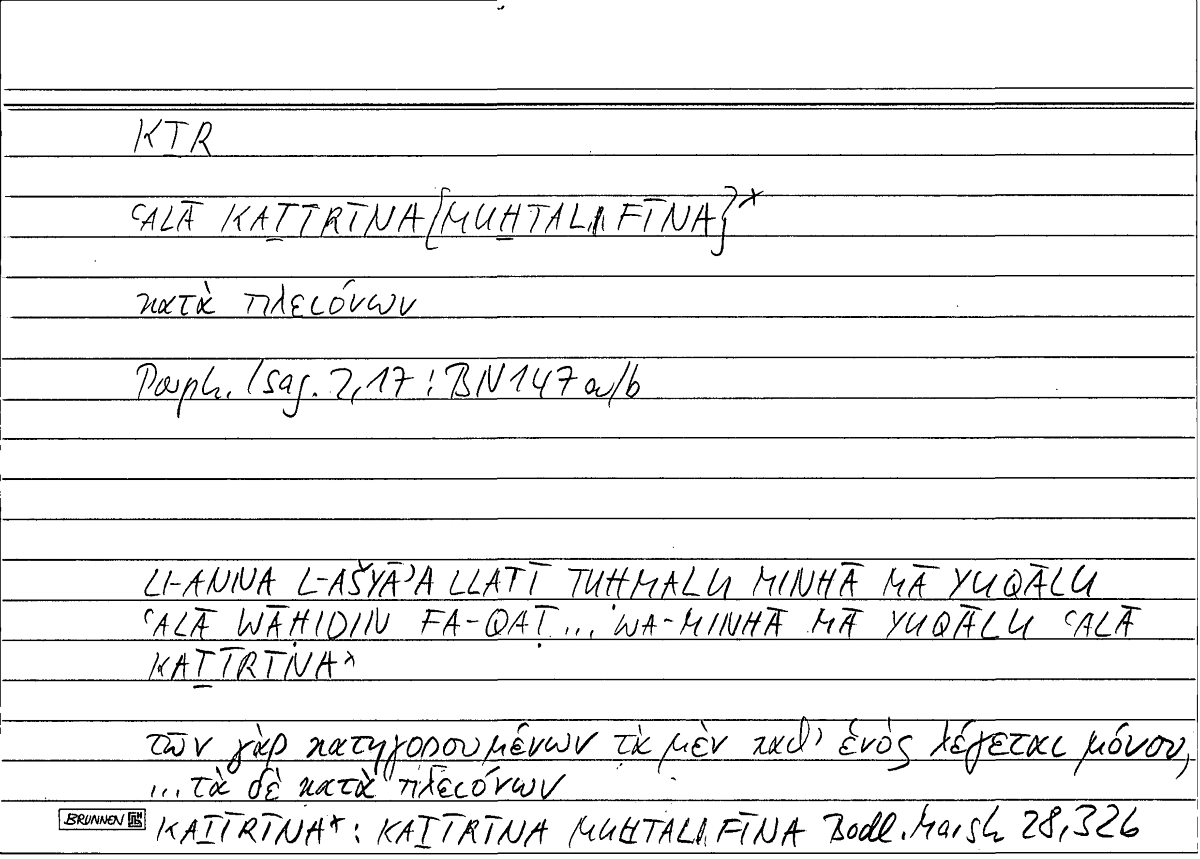 KṮR
ʿALĀ KAṮĪRĪNA {MUḪTALIFĪNA}*
κατὰ πλειόνων
Porph. Isag. 2,17 : BN 147 a/b
LI-ANNA L-AŠYĀʾA LLATĪ TUḤMALU MINHĀ MĀ YUQĀLU
ʿALĀ WĀḤIDIN FA-QAṬ... WA-MINHĀ MĀ YUQĀLU ʿALĀ
KAṮĪRĪNA*
τῶν γὰρ κατηγορουμένων τὰ μὲν καθ' ἑνός λέγεται μόνου,
... τὰ δὲ κατὰ πλειόνων
BRUNNEN KAṮĪRĪNA* : KAṮĪRĪNA MUḪTALIFĪNA Bodl. Marsh 28,326